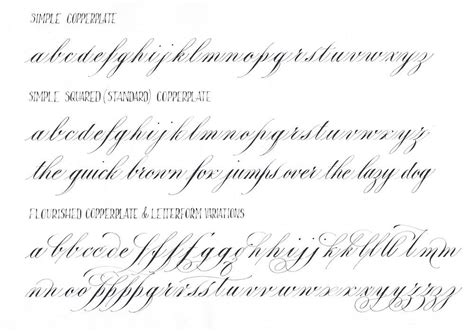 SIMPLE COPPERPLATE
abcdefghijklmnopqrstuvwxyz
SIMPLE SQUARED (STANDARD) COPPERPLATE
abcdefghijklmnopqrstuvwxyz
the quick brown fox jumps over the lazy dog
FLOURISHED COPPERPLATE & LETTERFORM VARIATIONS